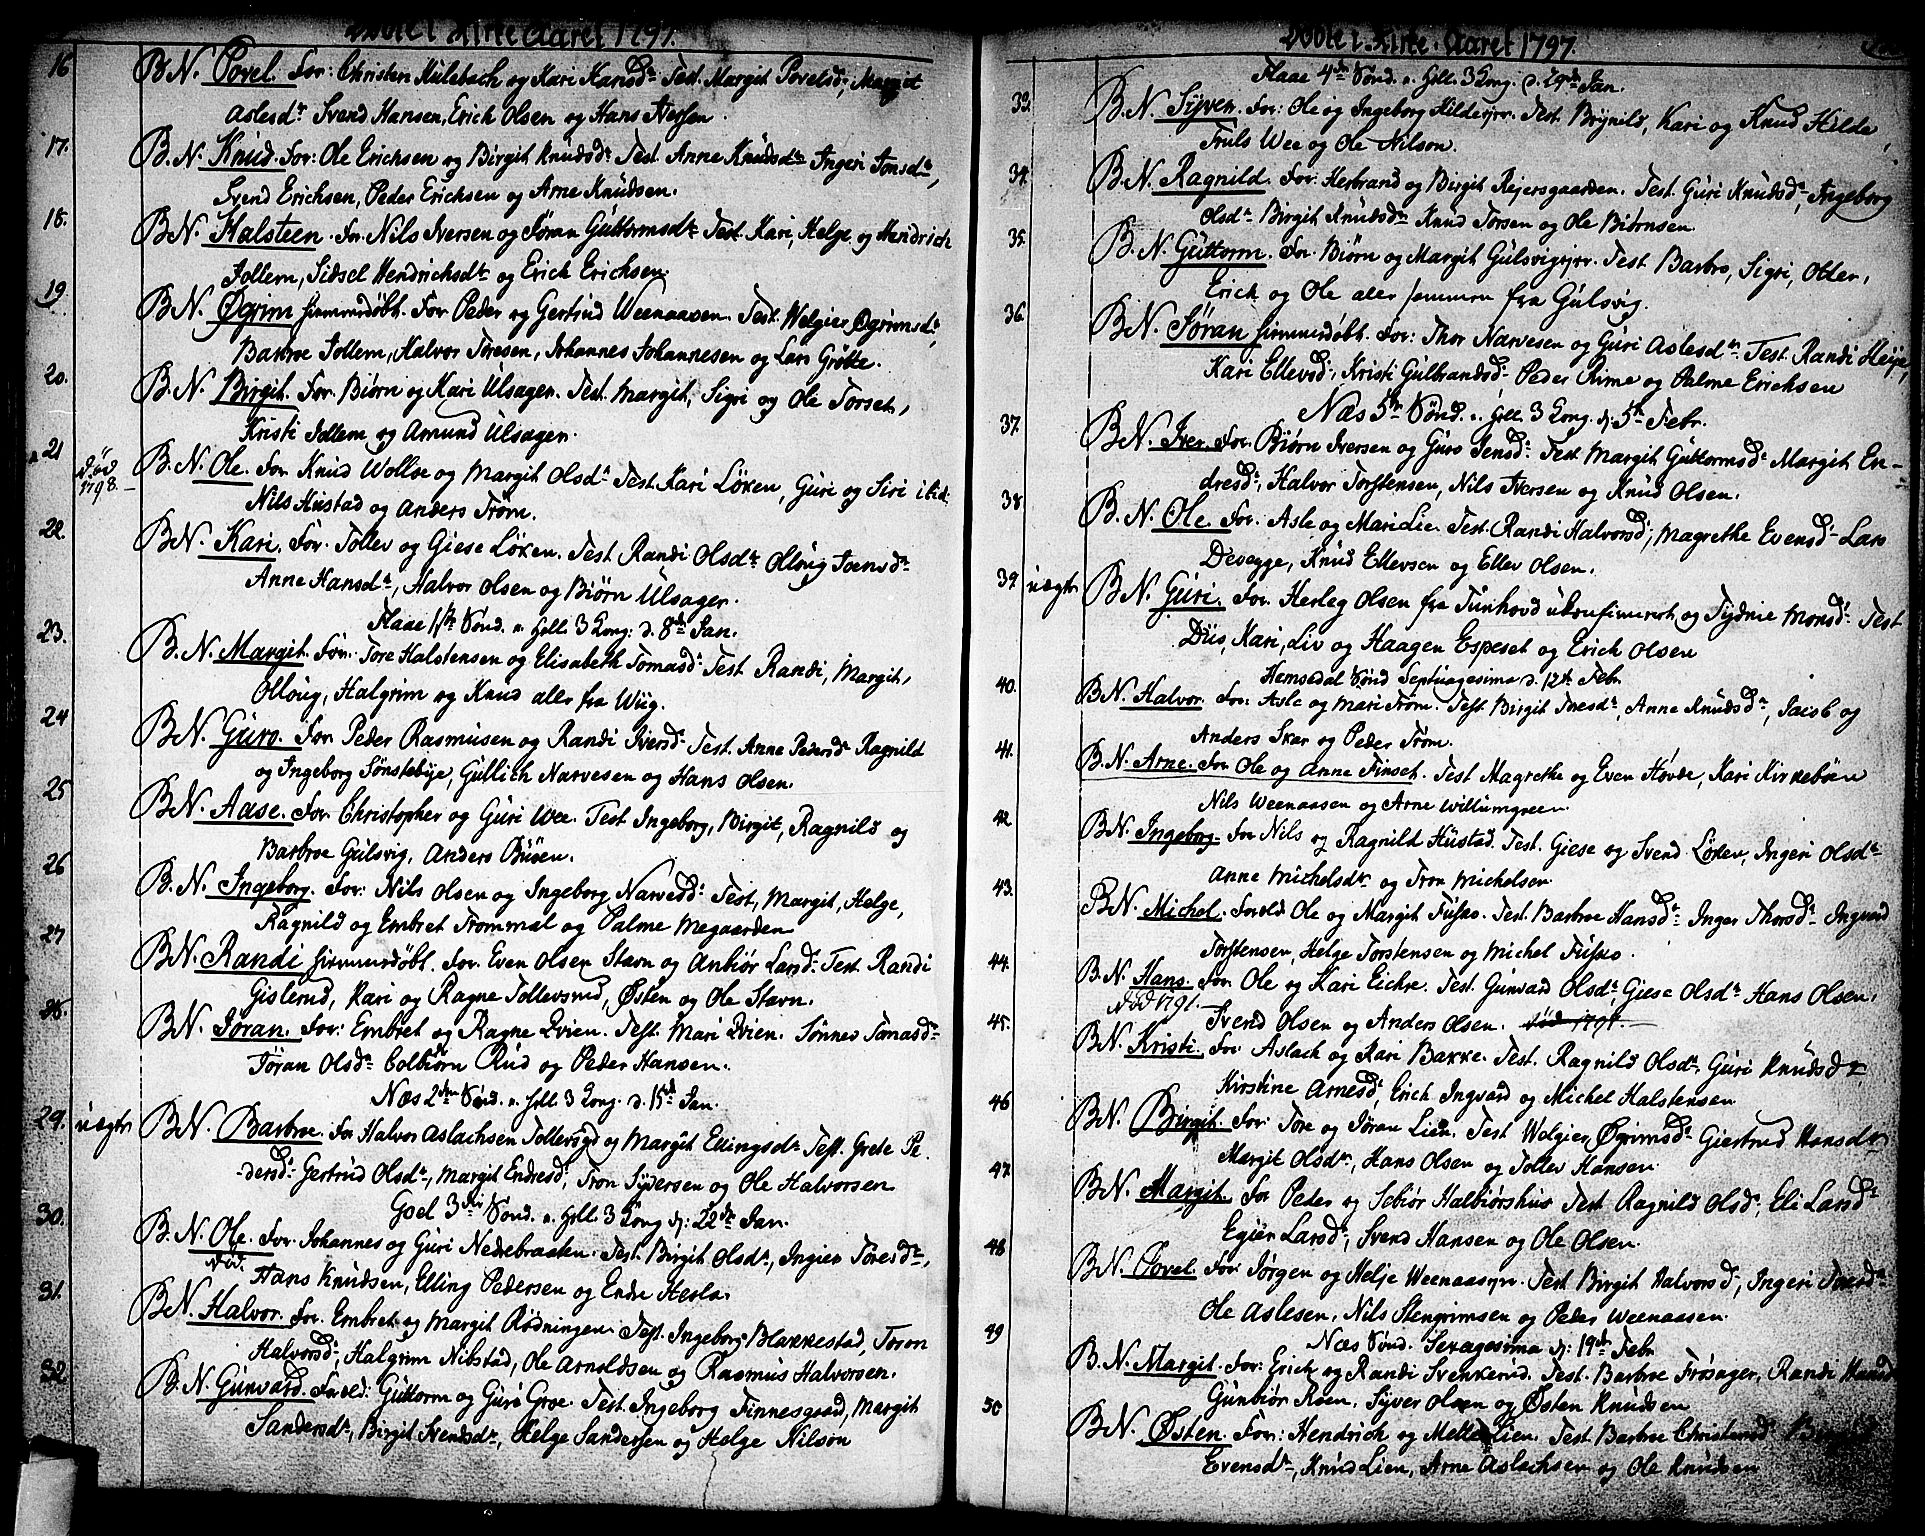 Døbte i Kirke Aaret 1797.
16 B.N. Povel. For: Christen Hulebach og Kari Hansd. Test. Margit Povelsd., Margit
Aslesdr. Svend Hansen, Erich Olsen og Hans Iversen.
17. B.N. Knud. For: Ole Erichsen og Birgit Knudsdr. Test. Anne Knudsdr. Ingeri Jonsdr.,
Svend Erichsen, Peder Erichsen og Arne Knudsen.
18. B.N. Halsteen. For. Nils Iversen og Jøran Guttormsdr. Test. Kari, Helge og Hendrich
Jollem, Sidsel Hendrichsdr. og Erich Erichsen.
19 B.N. Øgrim hiemmedøbt. For Peder og Gertrud Weenaasen. Test. Welgier Øgrimsdr.,
Barbroe Jollem, Halvor Toresen, Johannes Johannesen og Lars Grøtte.
20. B.N. Birgit. For. Biørn og Kari Ulsager. Test. Margit, Sigri og Ole Torset,
Kristi Jollem og Amund Ulsager.
21 død 1798. B.N. Ole. For Knud Wollse og Margit Olsd. Test. Kari Løken, Guri og Siri ibid:
Nils Hustad og Anders Trøm.
22. B.N. Kari. For. Tollev og Giese Løken. Test Randi Olsdr. Olloug Joensd.
Anne Hansdr., Halvor Olsen og Biørn Ulsager.
Flaae 1ste Sønd. e. Hell. 3 Kong: d. 8de Jan.
23. B.N. Margit. For. Tore Halstensen og Elisabeth Tomasd. Test Randi, Margit,
Olloug, Halgrim og Knud alle fra Wiig.
24 B.N. Guro. For Peder Rasmusen og Randi Iversd. Test. Anne Pedersd. Ragnild
og Ingeborg Sønstebye, Gullich Narvesen og Hans Olsen.
25 B.N. Aase. For Christopher og Guri Wee. Test Ingeborg, Birgit, Ragnild og
Barbroe Gulsvig, Anders Buøen.
26 B.N. Ingeborg. For: Nils Olsen og Ingeborg Narvesd. Test, Margit, Helge,
Ragnild og Embret Trommal og Palme Megaarden
27 B.N. Randi hiemmedøbt. For. Even Olsen Stavn og Anbiør Larsd. Test. Randi
Gislerud, Kari og Ragne Tollevsrud, Østen og Ole Stavn.
28. B.N. Jøran. For: Embret og Ragne Qvien. Test. Mari Qvien. Sønnev Tomasd.
Jøran Olsdr. Colbiørn Rud og Peder Hansen.
Næs 2den Sønd. e. Hell 3 Kong. d. 15de Jan.
29. uægte B.N. Barbroe. For Halvor Aslachsen Tollevsgd og Margit Ellingsdr. Test. Grete Pe-
dersd. Gertrud Olsdr., Margit Endresd., Tron Syversen og Ole Halvorsen
Goel 3die Sønd. e. Hell. 3 Kong d: 22de Jan.
30. B.N. Ole. For. Johannes og Guri Nedrebraaten. Test. Birgit Olsdr., Ingier Toresdr.,
død. Hans Knudsen, Elling Pedersen og Endre Hesla.
31. B.N. Halvor. For. Embret og Margit Rødningen. Test. Ingeborg Blakkestad, Toron
Halvorsd., Halgrim Nibstad, Ole Arnoldsen og Rasmus Halvorsen.
32 B.N. Gunvard. Forld: Guttorm og Guri Groe. Test. Ingeborg Finnesgaard, Margit
Sandersdr., Birgit Svendsdr., Helge Sandersen og Helge Nilson
Døbte i Kirke. Aaret 1797.
Flaae 4de Sønd. e. Hell. 3 Kong. d. 29de Jan.
33. B.N. Syver. For: Ole og Ingeborg Hildesejer. Test. Brynild, Kari og Knud Hilde,
Truls Wee og Ole Nilson.
34. B.N. Ragnild. For. Herbrand og Birgit Rejersgaarden. Test. Guri Knudsd., Ingeborg
Olsd. Birgit Knudsdr. Knud Torsen og Ole Biørnsen.
35. B.N. Guttorm. For. Biørn og Margit Gulsvigejer. Test Barbro, Sigri, Otter,
Erich og Ole alle sammen fra Gulsvig.
36. B.N. Jøran hiemmedøbt. For: Thor Narvesen og Guri Aslesdr. Test. Randi Heije,
Kari Ellevsd., Kristi Gulbrandsd. Peder Rime og Palme Erichsen
Næs 5te Sønd. e. Hell 3 Kong. d. 5te Febr.
37. B.N. Iver. For. Biørn Iversen og Guro Jensd. Test Margit Guttormsd. Margit En-
dresd., Halvor Torstensen, Nils Iversen og Knud Olsen.
38. B.N. Ole. For. Asle og Mari Lie. Test. Randi Halvorsd., Magrethe Evensd. Lars
Desegge, Knud Ellevsen og Ellev Olsen.
39. uægte B.N. Guri. For. Herleg Olsen fra Tunhovd ukonfirmeret og Tydnie Monsd. Test
Diis, Kari, Liv og Haagen Espeset og Erich Olsen
Hemsedal Sønd Septuagesima d. 12te Febr.
40. B.N. Halvor. For: Asle og Mari Trøm. Test. Birgit Toresdr., Anne Knudsdr., Jacob og
Anders Skar og Peder Trøm.
41. B.N. Arne. For. Ole og Anne Finset. Test Magrethe og Even Hovde, Kari Kirkebøen
Nils Weenaasen og Arne Willumgreen.
42 B.N. Ingeborg. For Nils og Ragnild Hustad. Test. Giese og Svend Løken, Ingeri Olsdr.
Anne Michelsdr. og Tron Michelsen
43. B.N. Michel. Foreld Ole og Margit Fusko. Test. Barbroe Hansd. Inger Thorsd. Ingvard
Torstensen, Helge Torstensen og Michel Fusko.
44. B.N. Hans. For Ole og Kari Eichre. Test. Gunvard Olsdr., Giese Olsdr. Hans Olsen,
død 1791. Svend Olsen og Anders Olsen. død 1791.
45. B.N. Kristi. For. Aslach og Kari Bakke. Test. Ragnild Olsdr. Guri Knudsdr.
Kirstine Arnesd., Erich Ingvard og Michel Halstensen
46 B.N. Birgit. For. Tore og Jøran Lien. Test Welgier Øgrimsd. Giertrud Hansdr.
Margit Olsdr., Hans Olsen og Tollev Hansen.
47. B.N. Margit. For Peder og Sebiør Halbiørshus Test Ragnild Olsd., Eli Larsd.
Egier Larsd., Svend Hansen og Ole Olsen.
48 B.N. Povel For Jørgen og Helje Weenaasejer. Test Birgit Halvorsd., Ingeri Toresd.
Ole Aslesen, Nils Stengrimsen og Peder Weenaasen.
Næs Sønd. Sexagesima d: 19de Febr
49 B.N. Margit. For: Erich og Randi Svenkerud. Test. Barbroe Frøsager, Randi Hansd.
Gunbiør Roen, Syver Olsen og Østen Knudsen
50 B.N. Østen. For: Hendrich og Mette Lien. Test Barbroe Christensd.
Evensdr., Knud Lien, Arne Aslachsen og Ole Knudsen